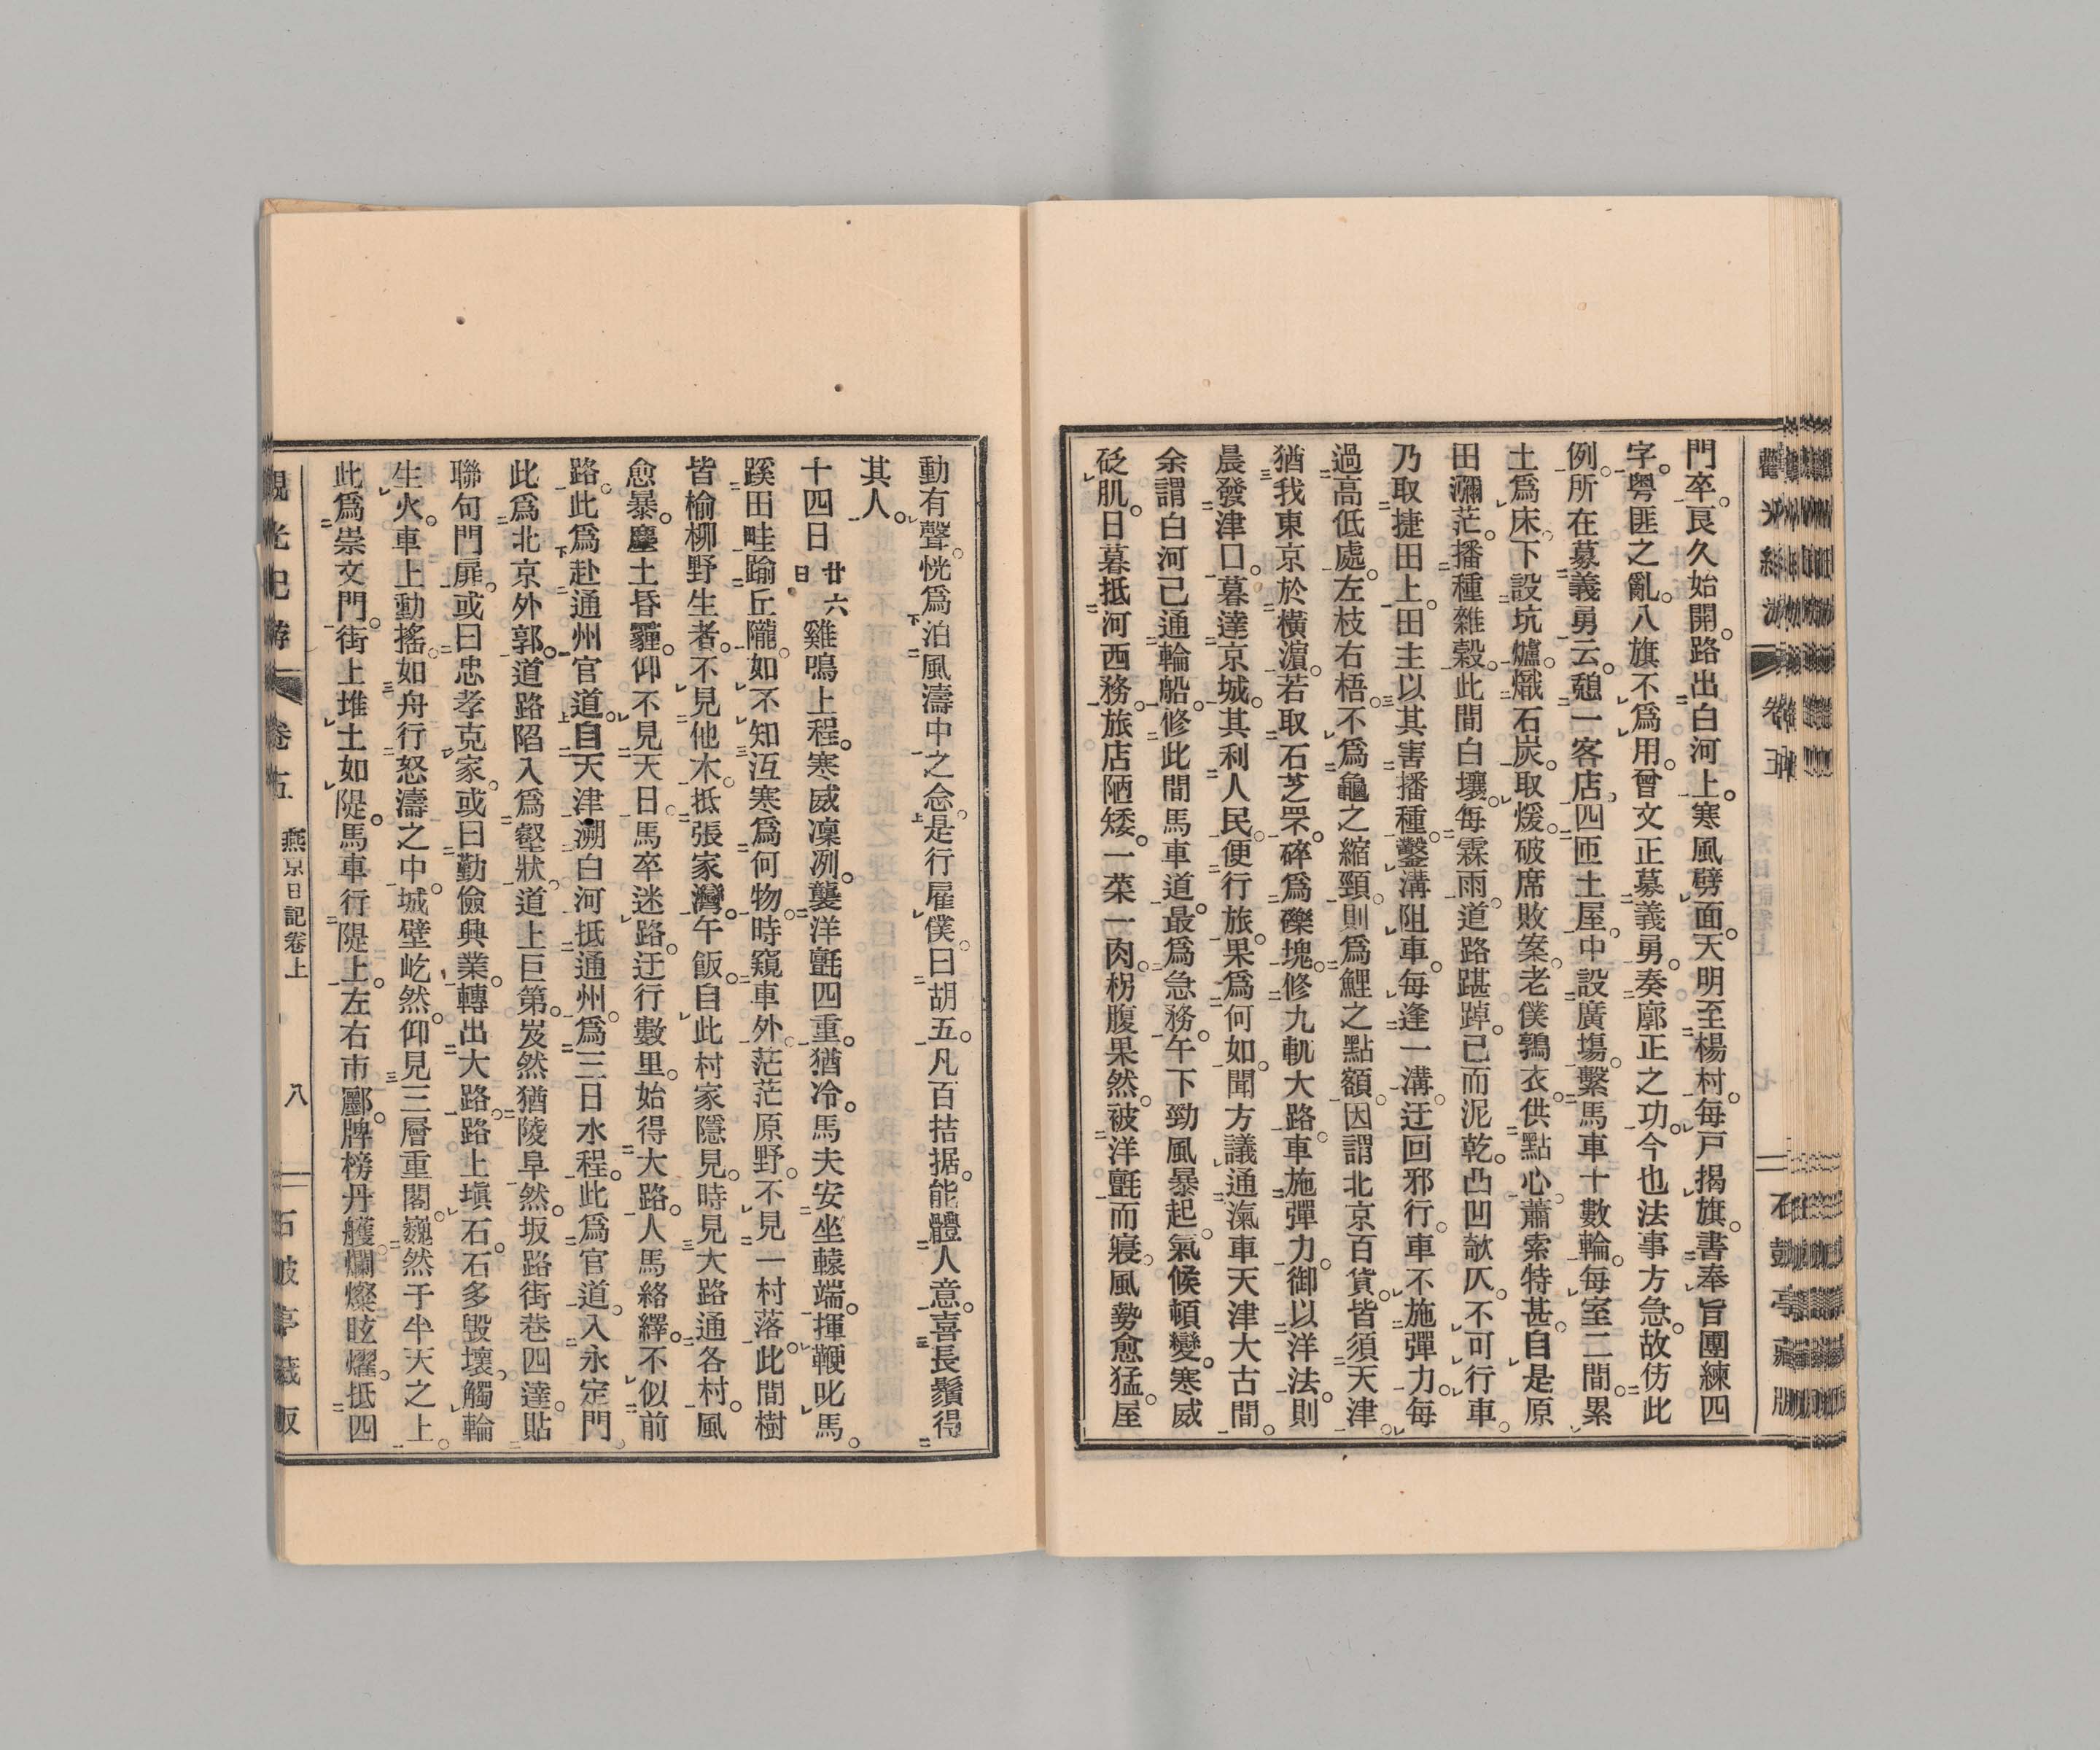 門卒。良久始開。路出白河上。寒風劈面。天明至楊村。每戸揭旗。書奉旨團練四
字。粤匪之亂。八旗不爲用。曾文正募義勇。奏廓正之功。今也法事方急。故仿此
例。所在募義勇云。憩一客店。四匝土屋。中設廣塲。繫馬車十數輪。每室二間。累
土爲床。下設坑爐。熾石炭。取煖。破席敗案。老僕鶉衣。供點心。蕭索特甚。自是原
田瀰茫。播種雜穀。此間白壤。每霖雨。道路踸踔。已而泥乾。凸凹欹仄。不可行車。
乃取捷田上。田主以其害播種。鑿溝阻車。每逢一溝。迂回邪行。車不施彈力。每
過高低處。左枝右梧。不爲龜之縮頸。則爲鯉之點額。因謂北京百貨。皆須天津。
猶我東京於横濵。若取石芝罘。碎爲礫塊。修九軌大路。車施彈力。御以洋法。則
晨發津口。暮達京城。其利人民。便行旅。果爲何如。聞方議通滊車天津大古間。
余謂白河已通輪船。修此間馬車道。最爲急務。午下勁風暴起。氣候頓變。寒威
砭肌。日暮抵河西務。旅店陋矮。一菜一肉。枵腹果然。被洋氈而寢。風勢愈猛。屋
動有聲。恍爲泊風濤中之念。是行雇僕。曰胡五。凡百拮据。能體人意。喜長鬚得
其人。
十四日 廿六日 雞鳴上程。寒威凜冽。襲洋氈四重。猶冷。馬夫安坐轅端。揮鞭叱馬。
蹊田畦踰丘隴。如不知沍寒爲何物。時窺車外。茫茫原野。不見一村落。此間樹
皆榆柳野生者。不見他木。抵張家灣。午飯。自此村家隱見。時見大路通各村。風
愈暴。塵土昏霾。仰不見天日。馬卒迷路。迂行數里。始得大路。人馬絡繹。不似前
路。此爲赴通州官道。自天津溯白河抵通州。爲三日水程。此爲官道。入永定門
此爲北京外郭。道路陷入爲壑狀。道上巨第。岌然猶陵阜然。坂路街巷四達。貼
聯句門扉。或曰忠孝克家。或曰勤儉興業。轉出大路。路上塡石。石多毀壞。觸輪
生火。車上動搖。如舟行怒濤之中。城壁屹然。仰見三層重閣。巍然于半天之上。
此爲崇文門。街上堆土如隄。馬車行隄上。左右市鄽。牌榜丹雘。爛燦眩燿。抵四
觀光記游 卷五 燕京日記卷上 八 石鼓亭藏版